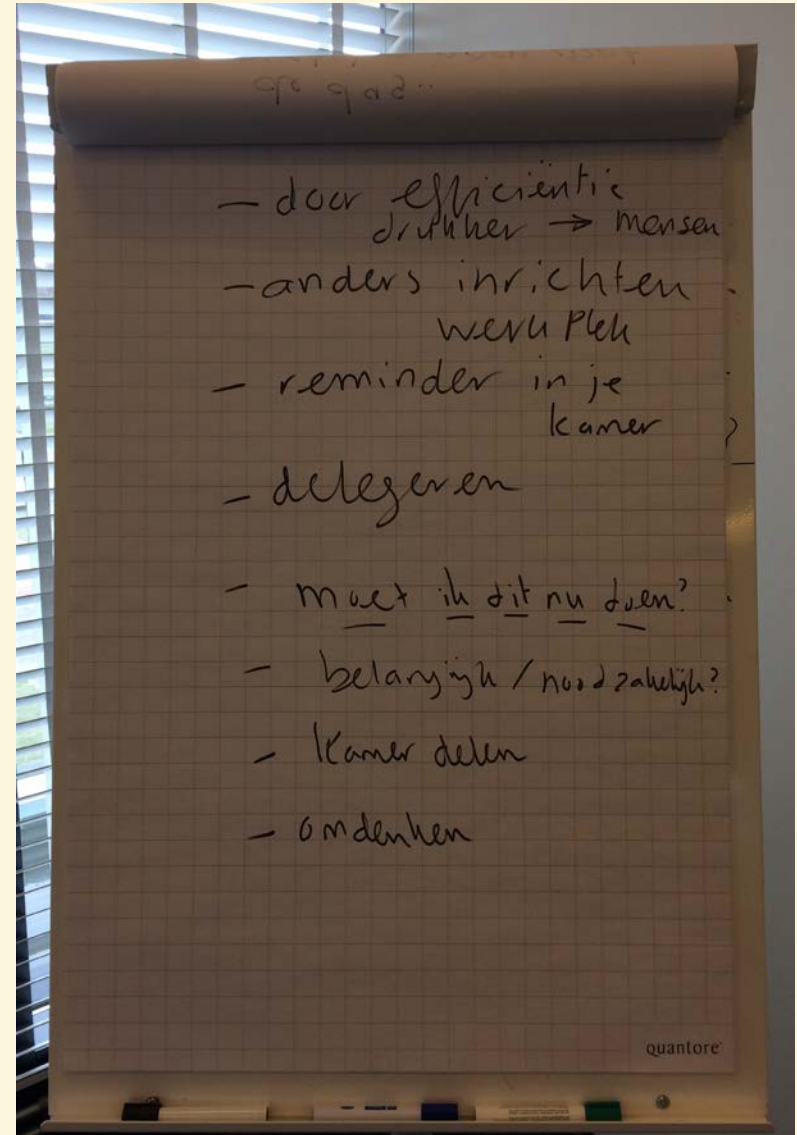 de dag..
– door efficiëntie
drukker → mensen
– anders inrichten
werk plek
– reminder in je
kamer ?
– delegeren
– moet ik dit nu doen?
– belangrijk / noodzakelijk?
– kamer delen
– omdenken
quantore